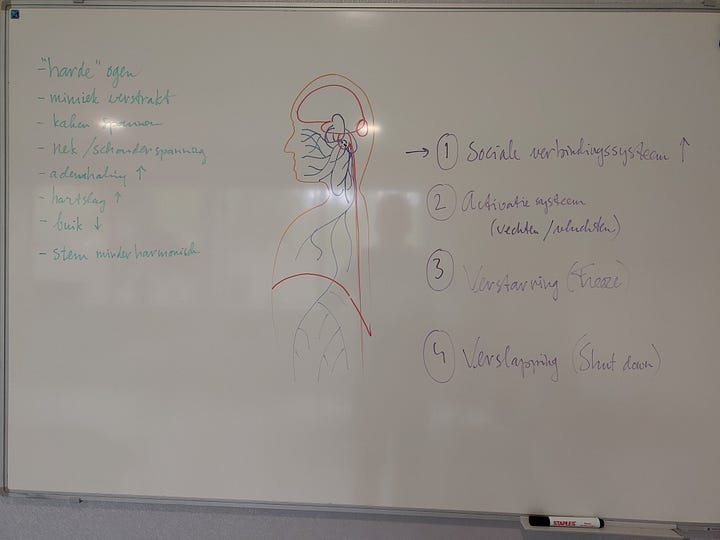 - "harde" ogen
- mimiek verstrakt
- kaken spannen
- nek / schouderspanning
- ademhaling ↑
- hartslag ↑
- buik ↓
- stem minder harmonisch
→ 1 Sociale verbindingssysteem ↑
2 Activatie systeem
(vechten / vluchten)
3 Verstarring (Freeze)
4 Verslapping (Shut down)
STAPLES